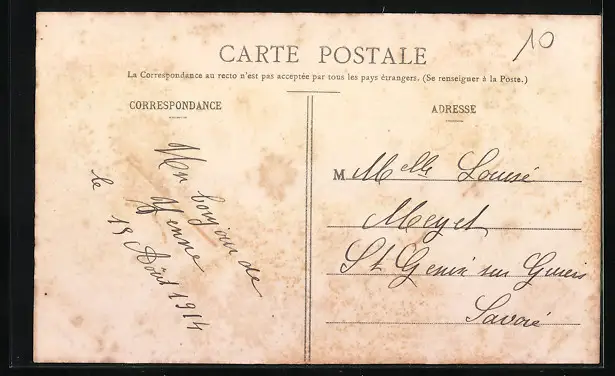 10
CARTE POSTALE
La Correspondance au recto n'est pas acceptée par tous les pays étrangers. (Se renseigner à la Poste.)
CORRESPONDANCE
Un bonjour de
Yenne
le 18 Août 1914
ADRESSE
M Melle Louise
Meyet
St Genix sur Guiers
Savoie